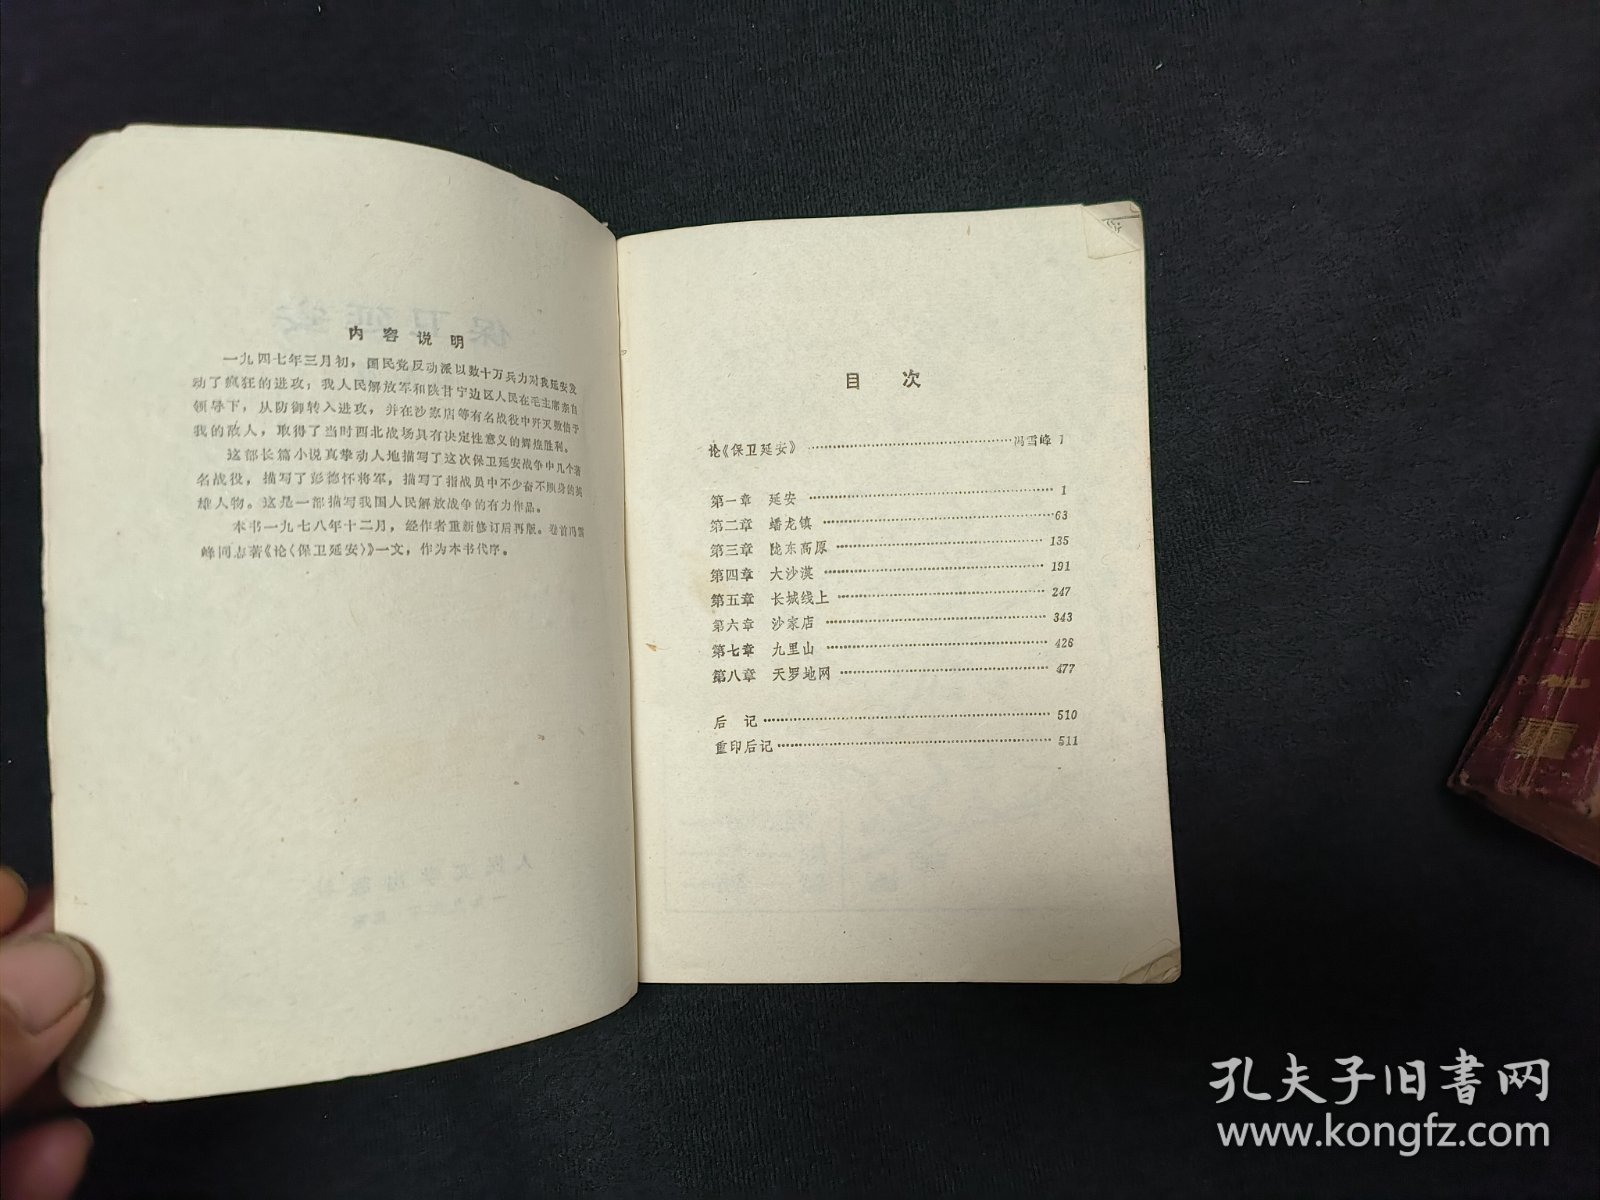 内容说明
一九四七年三月初，国民党反动派以数十万兵力对我延安发
动了疯狂的进攻，我人民解放军和陕甘宁边区人民在毛主席亲自
领导下，从防御转入进攻，并在沙家店等有名战役中歼灭数倍于
我的敌人，取得了当时西北战场具有决定性意义的辉煌胜利。
这部长篇小说真挚动人地描写了这次保卫延安战争中几个著
名战役，描写了彭德怀将军，描写了指战员中不少奋不顾身的英
雄人物。这是一部描写我国人民解放战争的有力作品。
本书一九七八年十二月，经作者重新修订后再版。卷首冯雪
峰同志著《论〈保卫延安〉》一文，作为本书代序。
目次
论《保卫延安》 冯雪峰 1
第一章 延安 1
第二章 蟠龙镇 63
第三章 陇东高原 135
第四章 大沙漠 191
第五章 长城线上 247
第六章 沙家店 343
第七章 九里山 426
第八章 天罗地网 477
后记 510
重印后记 511
孔夫子旧书网
www.kongfz.com